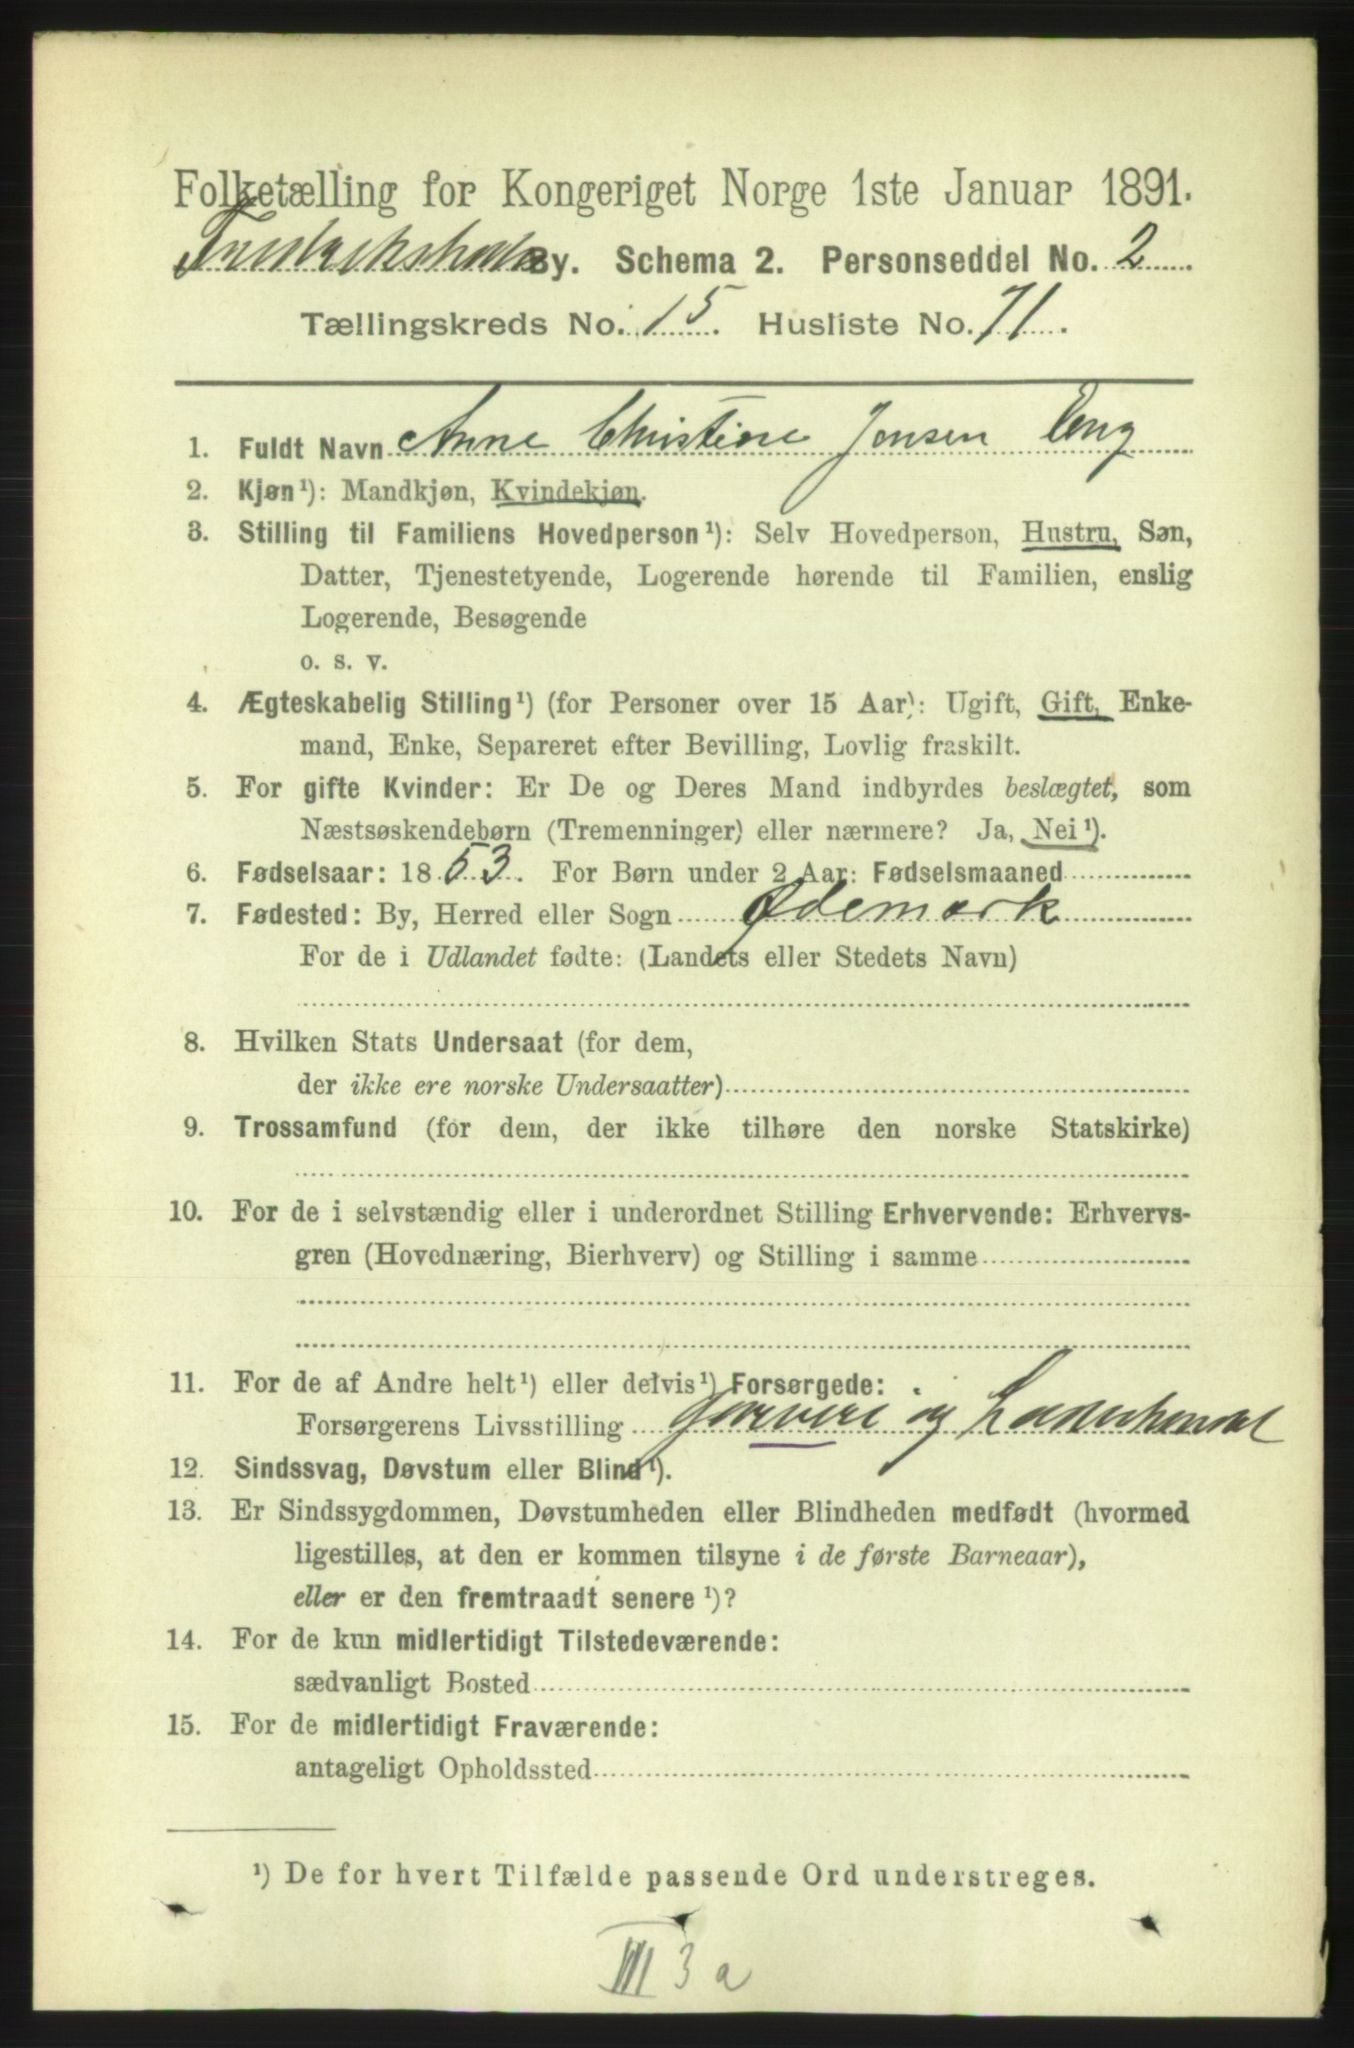 Folketælling for Kongeriget Norge 1ste Januar 1891.
Fredrikshald By. Schema 2. Personseddel No. 2
Tællingskreds No. 15. Husliste No. 71.
1. Fuldt Navn Anne Christine Jensen Eng
2. Kjøn¹): Mandkjøn, Kvindekjøn.
3. Stilling til Familiens Hovedperson¹): Selv Hovedperson, Hustru, Søn,
Datter, Tjenestetyende, Logerende hørende til Familien, enslig
Logerende, Besøgende
o. s. v.
4. Ægteskabelig Stilling¹) (for Personer over 15 Aar): Ugift, Gift, Enke-
mand, Enke, Separeret efter Bevilling, Lovlig fraskilt.
5. For gifte Kvinder: Er De og Deres Mand indbyrdes beslægtet, som
Næstsøskendebørn (Tremenninger) eller nærmere? Ja, Nei¹).
6. Fødselsaar: 1853. For Børn under 2 Aar: Fødselsmaaned
7. Fødested: By, Herred eller Sogn Ødemark
For de i Udlandet fødte: (Landets eller Stedets Navn)
8. Hvilken Stats Undersaat (for dem,
der ikke ere norske Undersaatter)
9. Trossamfund (for dem, der ikke tilhøre den norske Statskirke)
10. For de i selvstændig eller i underordnet Stilling Erhvervende: Erhvervs-
gren (Hovednæring, Bierhverv) og Stilling i samme
11. For de af Andre helt¹) eller delvis¹) Forsørgede:
Forsørgerens Livsstilling Garveri og Læderhandel
12. Sindssvag, Døvstum eller Blind¹).
13. Er Sindssygdommen, Døvstumheden eller Blindheden medfødt (hvormed
ligestilles, at den er kommen tilsyne i de første Barneaar),
eller er den fremtraadt senere¹)?
14. For de kun midlertidigt Tilstedeværende:
sædvanligt Bosted
15. For de midlertidigt Fraværende:
antageligt Opholdssted
¹) De for hvert Tilfælde passende Ord understreges.
III 3 a